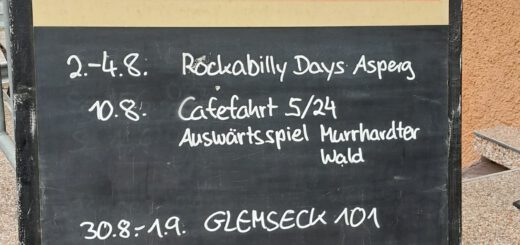 2.-4.8. Rockabilly Days Asperg
10.8. Cafefahrt 5/24
Auswärtsspiel Murrhardter
Wald
30.8.-1.9. GLEMSECK 101